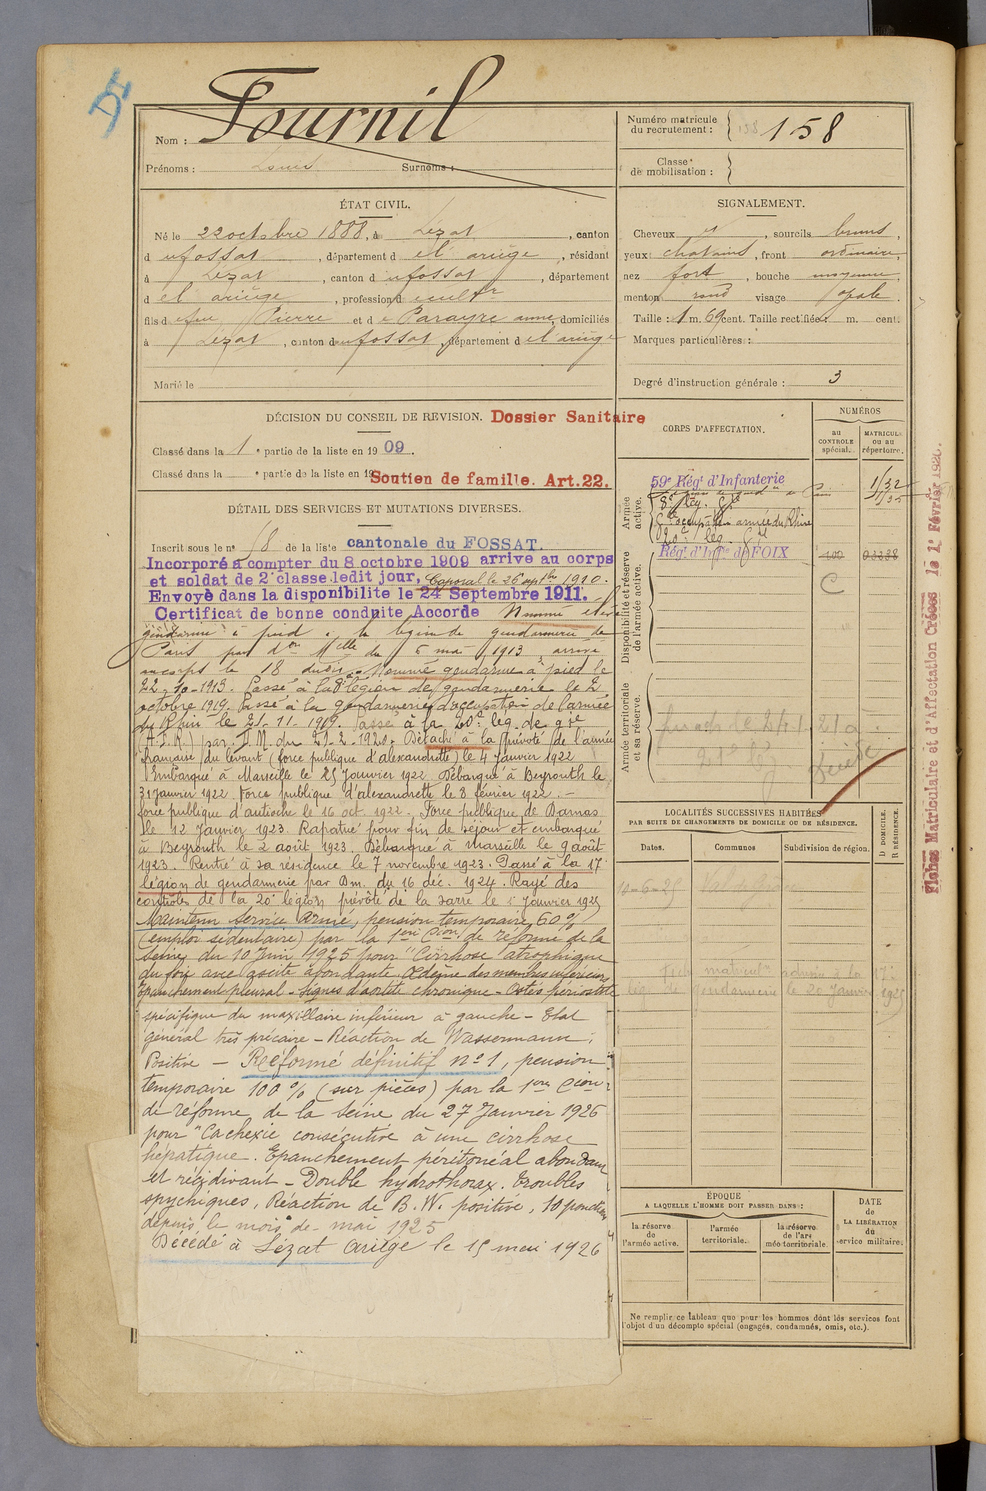 Fournil
Nom :
Prénoms : Louis Surnoms :
Numéro matricule du recrutement : 158
Classe de mobilisation :
ÉTAT CIVIL.
Né le 22 octobre 1888, à Lézat, canton
d u fossat, département d e l'ariège, résidant
à Lézat, canton d u fossat, département
d e l'ariège, profession d cultr
fils d e feu Pierre et d e Parayre anne, domiciliés
à Lézat, canton d u fossat, département d e l'ariège
Marié le
SIGNALEMENT.
Cheveux, sourcils bruns,
yeux chatains, front ordinaire,
nez fort, bouche moyenne,
menton rond visage ovale.
Taille : 1 m. 69 cent. Taille rectifiée : m. cent.
Marques particulières :
Degré d'instruction générale : 3
DÉCISION DU CONSEIL DE REVISION. Dossier Sanitaire
Classé dans la 1e partie de la liste en 1909.
Classé dans la e partie de la liste en 19
Soutien de famille. Art.22.
DÉTAIL DES SERVICES ET MUTATIONS DIVERSES.
Inscrit sous le n° 58 de la liste cantonale du FOSSAT.
Incorporé à compter du 8 octobre 1909 arrive au corps
et soldat de 2e classe ledit jour, Caporal le 26 septbre 1910.
Envoyé dans la disponibilité le 24 Septembre 1911.
Certificat de bonne conduite Accordé Nommé élève
gendarme à pied à la légion de gendarmerie de
Paris par don Melle du 6 mai 1913, arrivé
au corps le 18 dudit. Nommé gendarme à pied le
22-10-1913. Passé à la 8e légion de gendarmerie le 2
octobre 1919. Passé à la gendarmerie d'occupation de l'armée
du Rhin le 21-11-1919. Passé à la 20e leg. de gie
(A.F.R.) par D.M. du 21-2-1920. Détaché à la prévôté de l'armée
française du levant (force publique d'alexandrette) le 4 Janvier 1922
Embarqué à Marseille le 25 Janvier 1922 Débarqué à Beyrouth le
31 Janvier 1922 Force publique d'alexandrette le 8 février 1922. -
force publique d'antioche le 16 oct. 1922. Force publique de Damas
le 12 Janvier 1923. Rapatrié pour fin de séjour et embarqué
à Beyrouth le 2 août 1923. Débarqué à Marseille le 9 août
1923. Rentré à sa résidence le 7 novembre 1923. Passé à la 17e
légion de gendarmerie par Dm. du 16 déc. 1924. Rayé des
contrôles de la 20e légion prévôté de la sarre le 5 Janvier 1925
Maintenu Service armé, pension temporaire 60 %
(emploi sédentaire) par la 1ere Cion de réforme de la
Seine, du 10 Juin 1925 pour "Cirrhose atrophique
du foie avec ascite abondante Œdème des membres inférieurs
Epanchement pleural - Signes d'aortite chronique - Ostéo périostite
spécifique du maxillaire inférieur à gauche - Etat
général très précaire - Réaction de Wassermann :
Positive - Réformé définitif n°1, pension
temporaire 100 % (sur pièces) par la 1ere Cion
de réforme de la Seine du 27 Janvier 1926
pour "Cachexie consécutive à une cirrhose
hépatique. Epanchement péritonéal abondant
et récidivant - Double hydrothorax. Troubles
spychiques, Réaction de B.W. positive, 10 ponctions
depuis le mois de mai 1925
Décédé à Lézat ariège le 15 mai 1926
CORPS D'AFFECTATION.
NUMÉROS
au CONTROLE spécial.
MATRICULE ou au répertoire.
Armée active.
59e Régt d'Infanterie
8e Lég. Gie
Gie occupation armée du Rhin
20e lég. Gie
Disponibilité et réserve de l'armée active.
Régt d'Infie de FOIX
C
Armée territoriale et sa réserve.
LOCALITÉS SUCCESSIVES HABITÉES
PAR SUITE DE CHANGEMENTS DE DOMICILE OU DE RÉSIDENCE.
Dates. Communes Subdivision de région. D DOMICILE. R RÉSIDENCE.
Fiche matricule adressée à la 17e
lég. de gendarmerie le 20 Janvier 1925
ÉPOQUE
A LAQUELLE L'HOMME DOIT PASSER DANS :
la réserve de l'armée active.
l'armée territoriale.
la réserve de l'armée territoriale.
DATE DE LA LIBÉRATION du service militaire.
Ne remplir ce tableau que pour les hommes dont les services font
l'objet d'un décompte spécial (engagés, condamnés, omis, etc.).
Fiches Matriculaire et d'Affectation Créées le 1er Février 1926.